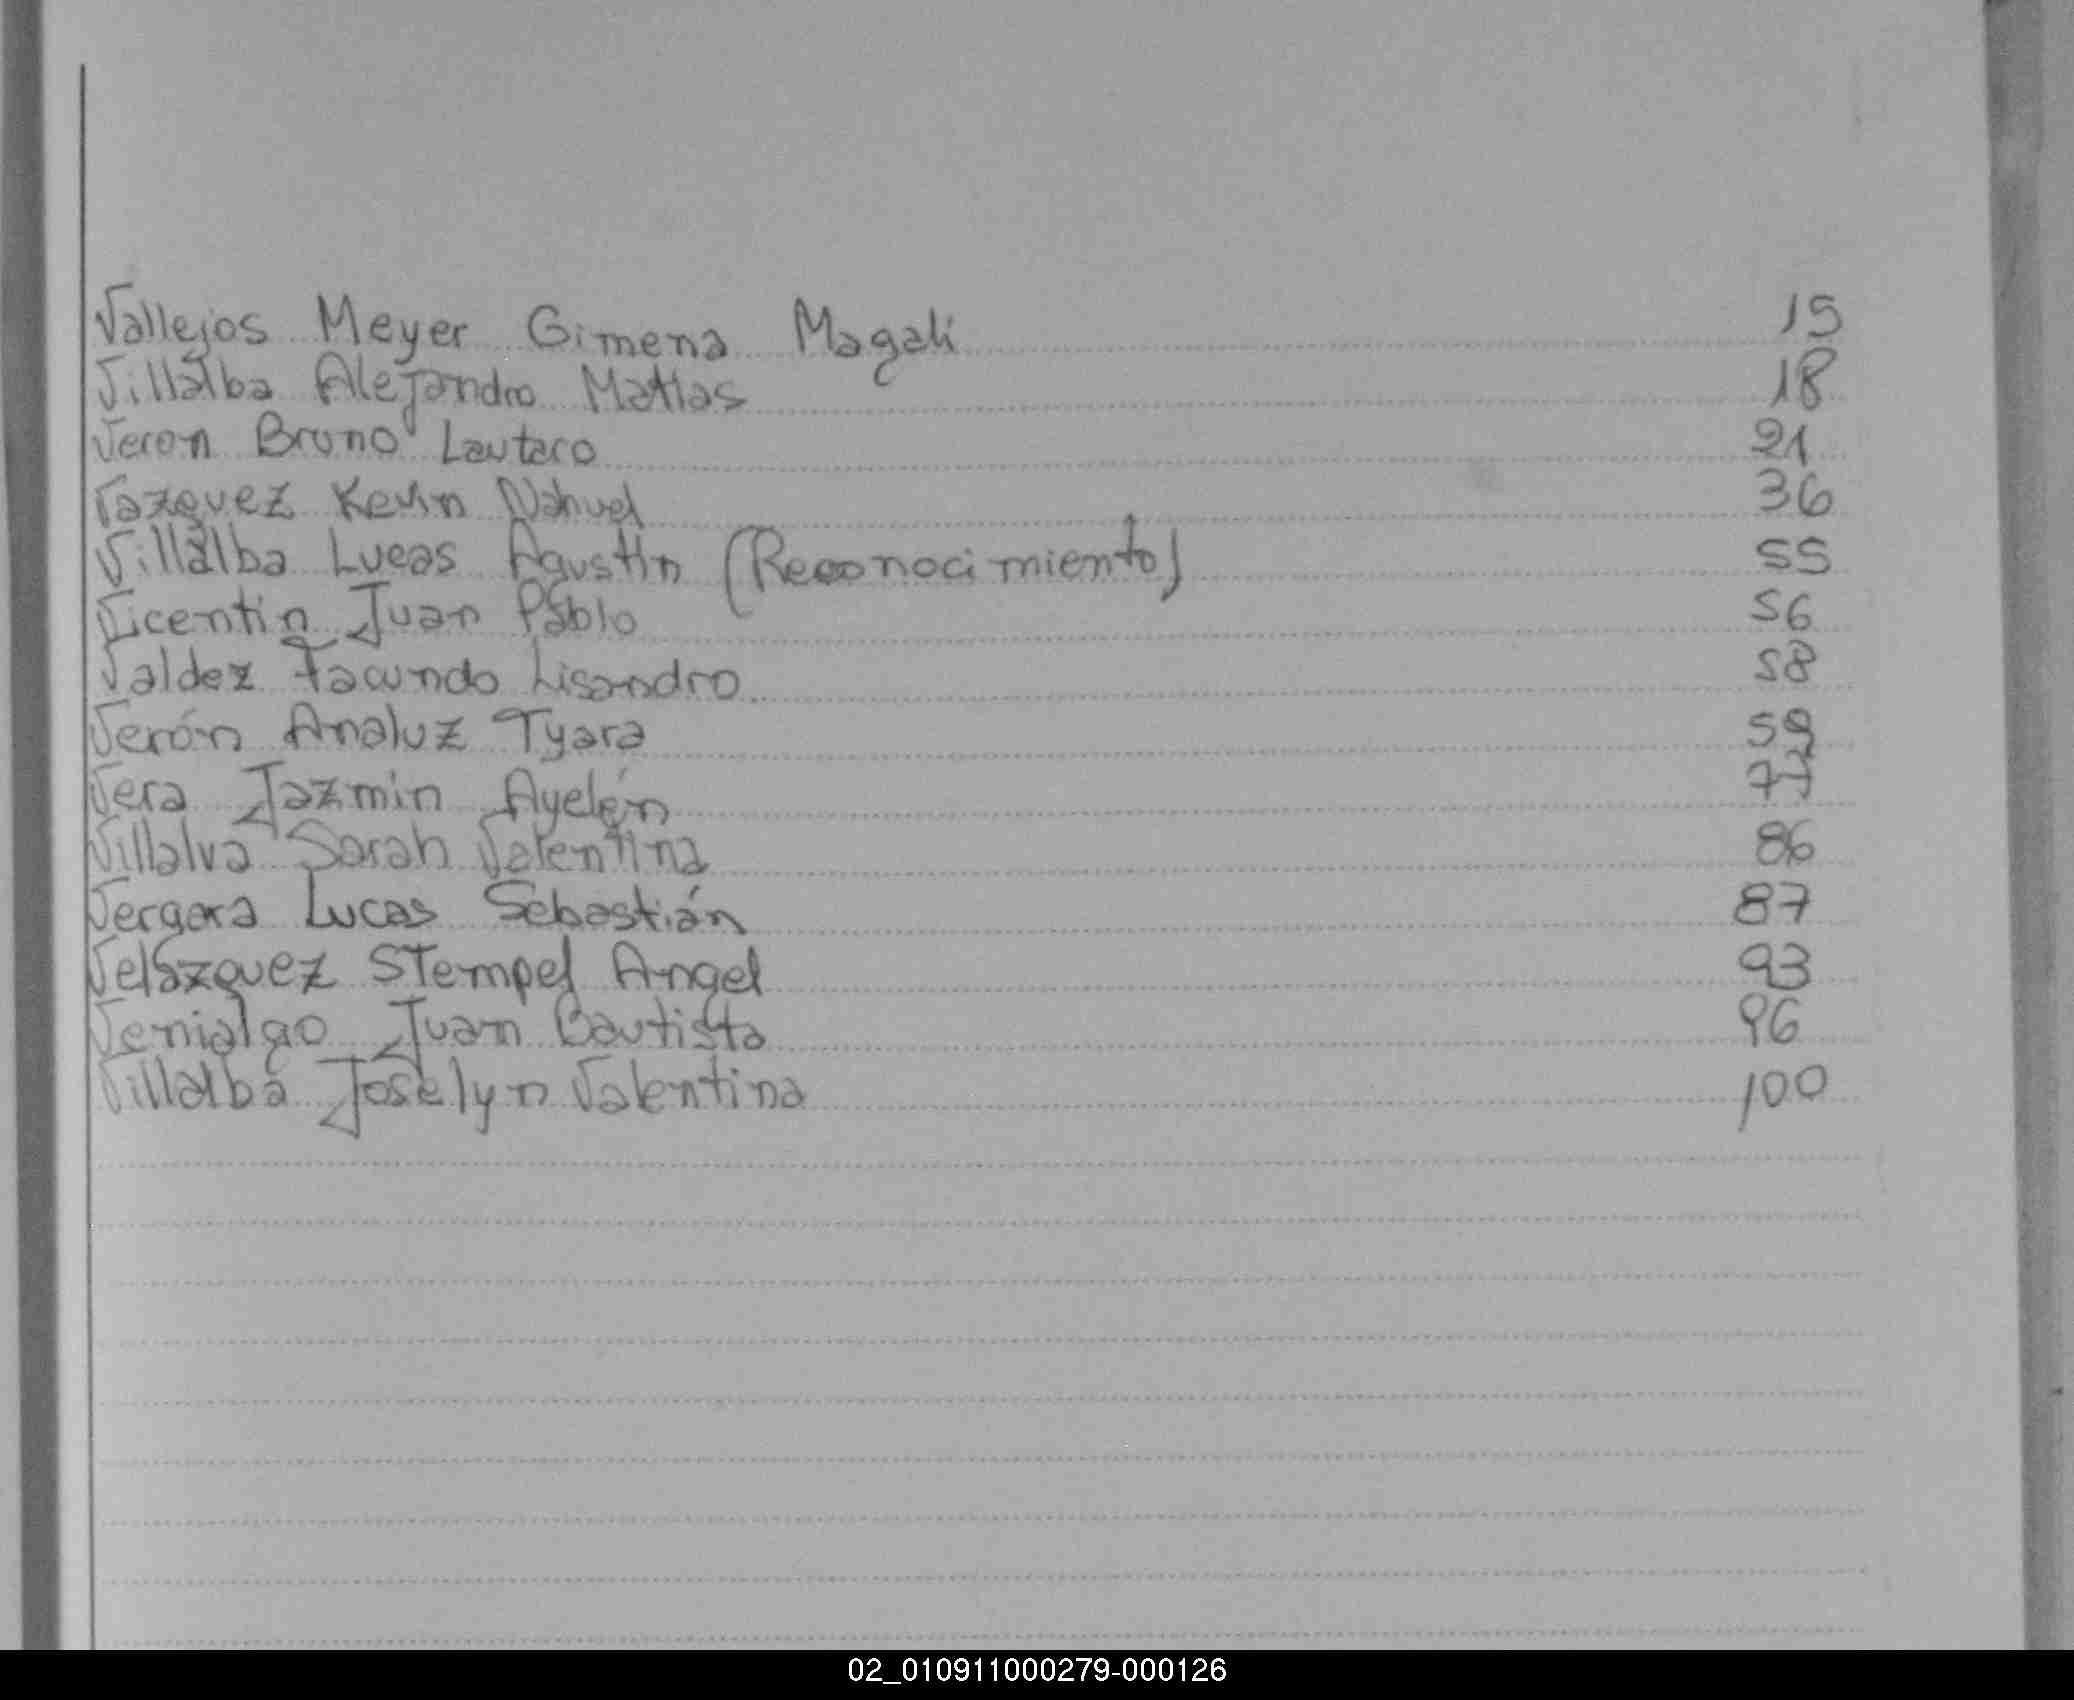 Vallejos Meyer Gimena Magali 15
Villalba Alejandro Matias 18
Veron Bruno Lautaro 21
Vazquez Kevin Nahuel 36
Villalba Lucas Agustin (Reconocimiento) 55
Vicentin Juan Pablo 56
Valdez Facundo Lisandro 58
Verón Analuz Tyara 59
Vera Jazmin Ayelén 77
Villalva Sarah Valentina 86
Vergara Lucas Sebastián 87
Velázquez Stempel Angel 93
Venialgo Juan Bautista 96
Villalba Joselyn Valentina 100
02_010911000279-000126